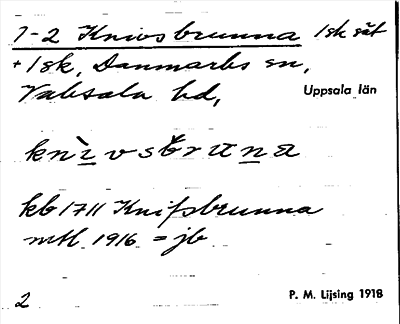 1-2 Knivsbrunna 1sk såt
+ 1sk, Danmarks sn,
Vaksala hd, Uppsala län
knìvsbrana
kb 1711 Knifsbrunna
mtl 1916 = jb
2 P. M. Lijsing 1918